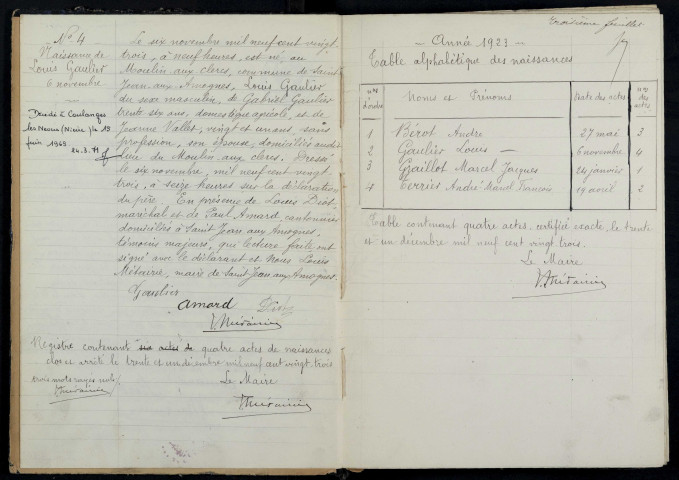 N° 4
Naissance de
Louis Gaulier
6 novembre
Décédé à Coulanges
les Nevers (Nièvre) le 19
juin 1969
Le six novembre mil neuf cent vingt-
trois, à neuf heures, est né, au
Moulin aux clercs, commune de Saint-
Jean aux Amognes, Louis Gaulier
du sexe masculin, de Gabriel Gaulier
trente six ans, domestique agricole, et de
Jeanne Vallet, vingt et un ans, sans
profession, son épouse, domiciliés audit
lieu du Moulin aux clercs. Dressé
le six novembre, mil neuf cent vingt
trois, à seize heures sur la déclaration
du père. En présence de Louis Diot
maréchal et de Paul Amard, cantonnier
domiciliés à Saint Jean aux Amognes,
témoins majeurs, qui, lecture faite ont
signé avec le déclarant et Nous Louis
Métairie, maire de Saint Jean aux Amognes.
Gaulier
Amard Diot
L. Métairie
Registre contenant six actes de quatre actes de naissances
clos et arrêté le trente et un décembre mil neuf cent vingt trois
trois mots rayés nuls
Le Maire
L. Métairie
L. Métairie
troisième feuillet
- Année 1923 -
Table alphabétique des naissances
n°s d'ordre Noms et Prénoms Date des actes n°s des actes
1 Bérot André 27 mai 3
2 Gaulier Louis — 6 novembre 4
3 Graillot Marcel Jacques 24 janvier 1
4 Terrier André Marcel François 19 avril 2
Table contenant quatre actes certifiée exacte, le trente
et un décembre mil neuf cent vingt trois.
Le Maire
L. Métairie